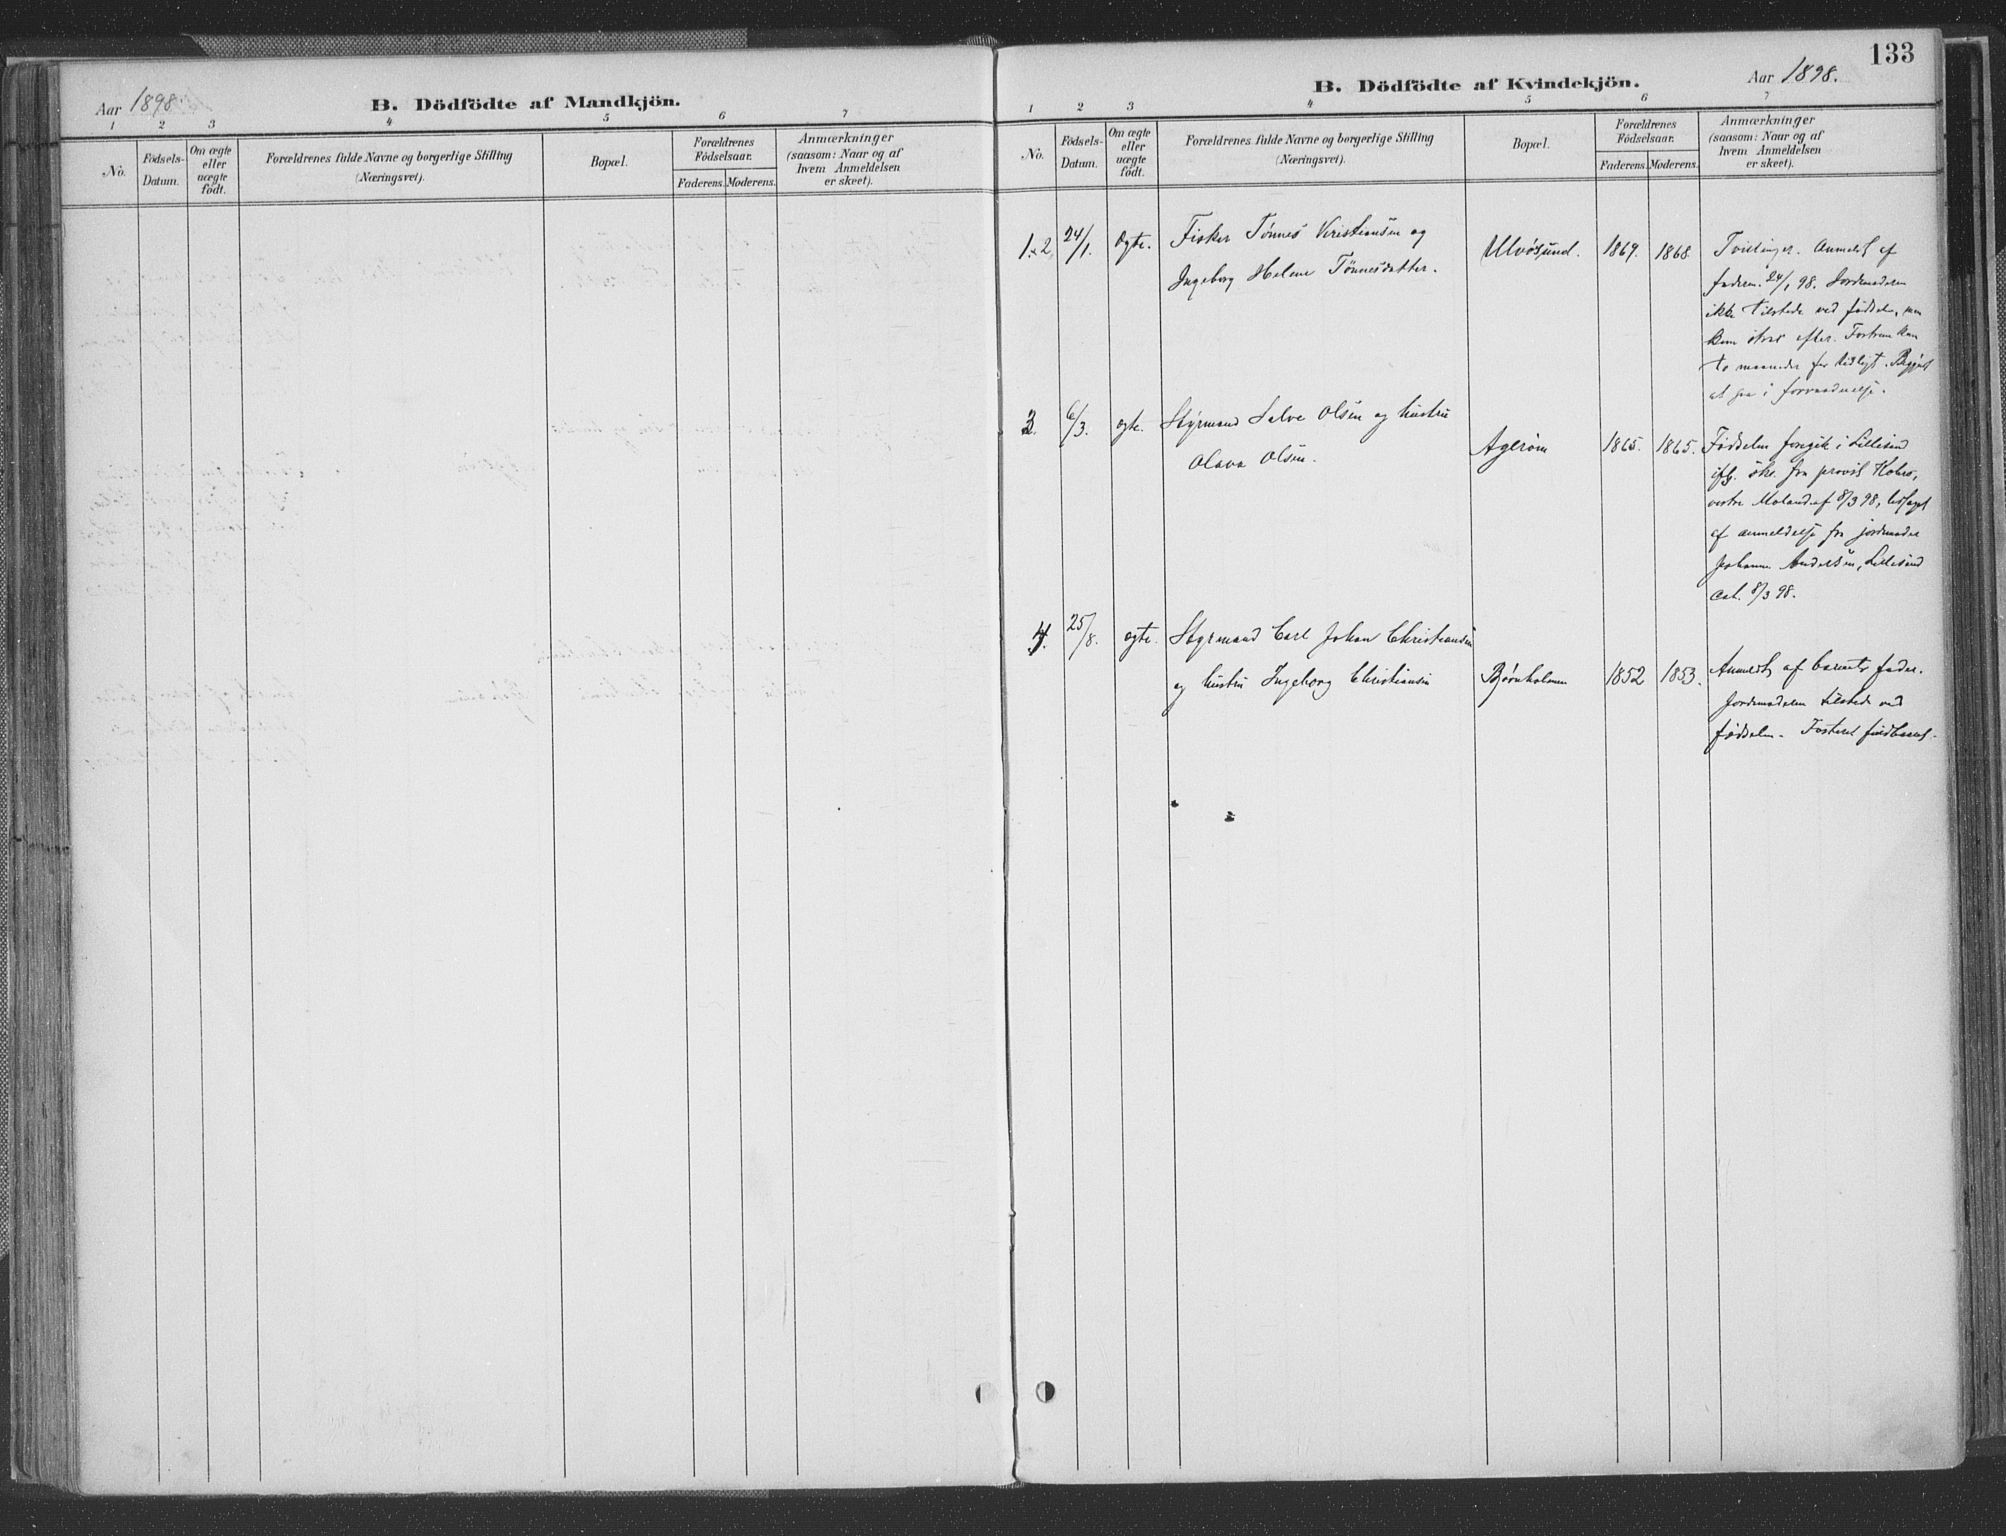 Aar 1898.
B. Dödfödte af Mandkjön.
1 2 3 4 5 6 7
No.
Födsels-
Datum.
Om ægte
eller
uægte
födt.
Forældrenes fulde Navne og borgerlige Stilling
(Næringsvei).
Bopæl.
Forældrenes
Födselsaar.
Faderens. Moderens.
Anmærkninger
(saasom: Naar og af
hvem Anmeldelsen
er skeet).
133
B. Dödfödte af Kvindekjön.
Aar 1898.
1 2 3 4 5 6 7
No.
Födsels-
Datum.
Om ægte
eller
uægte
födt.
Forældrenes fulde Navne og borgerlige Stilling
(Næringsvei).
Bopæl.
Forældrenes
Födselsaar.
Faderens. Moderens.
Anmærkninger
(saasom: Naar og af
hvem Anmeldelsen
er skeet).
1.2 24/1. Ægte. Fisker Tønnes Kristiansen og
Ingeborg Helene Tønnesdatter.
Ulvøsund. 1867. 1868
Tvillinger. Anmeldt af
faderen 24/1 98. Jordmoderen
ikke tilstede ved fødselen, men
kom strax efter. Fostrene kom
to maaneder for tidligt. Begyndt
at gaa i forraadnelse.
3. 6/3. ægte. Styrmand Salve Olsen og hustru
Olava Olsen.
Agerøen 1865. 1865.
Fødselen foregik i Lillesand
ifg. skr. fra provst
vestre Moland af 8/3 98, ledsaget
af anmeldelse fra jordmoder
Johanne Andersen, Lillesand
dat. 8/3 98.
4. 25/8. ægte. Styrmand Carl Johan Christiansen
og hustru Ingeborg Christiansen
Bjørnholmen 1852 1853.
Anmeldt af barnets fader.
Jordemoderen tilstede ved
fødselen. Fosteret fuldbaaret.